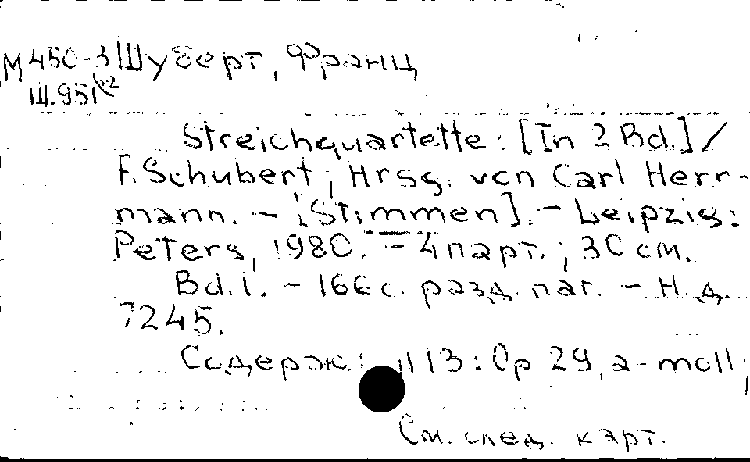 М450-3 Шуберт, Франц
Ш.951
Streichquartette: [In 2 Bd.] /
F. Schubert; Hrsg. von Carl Herr-
mann. – [Stimmen]. – Leipzig:
Peters, 1980. – 4 парт.; 30 см.
Bd. 1. – 166 с. разд. паг. – Н. д.
7245.
Содерж.: 13: Op 29, a-moll;
См. след. карт.